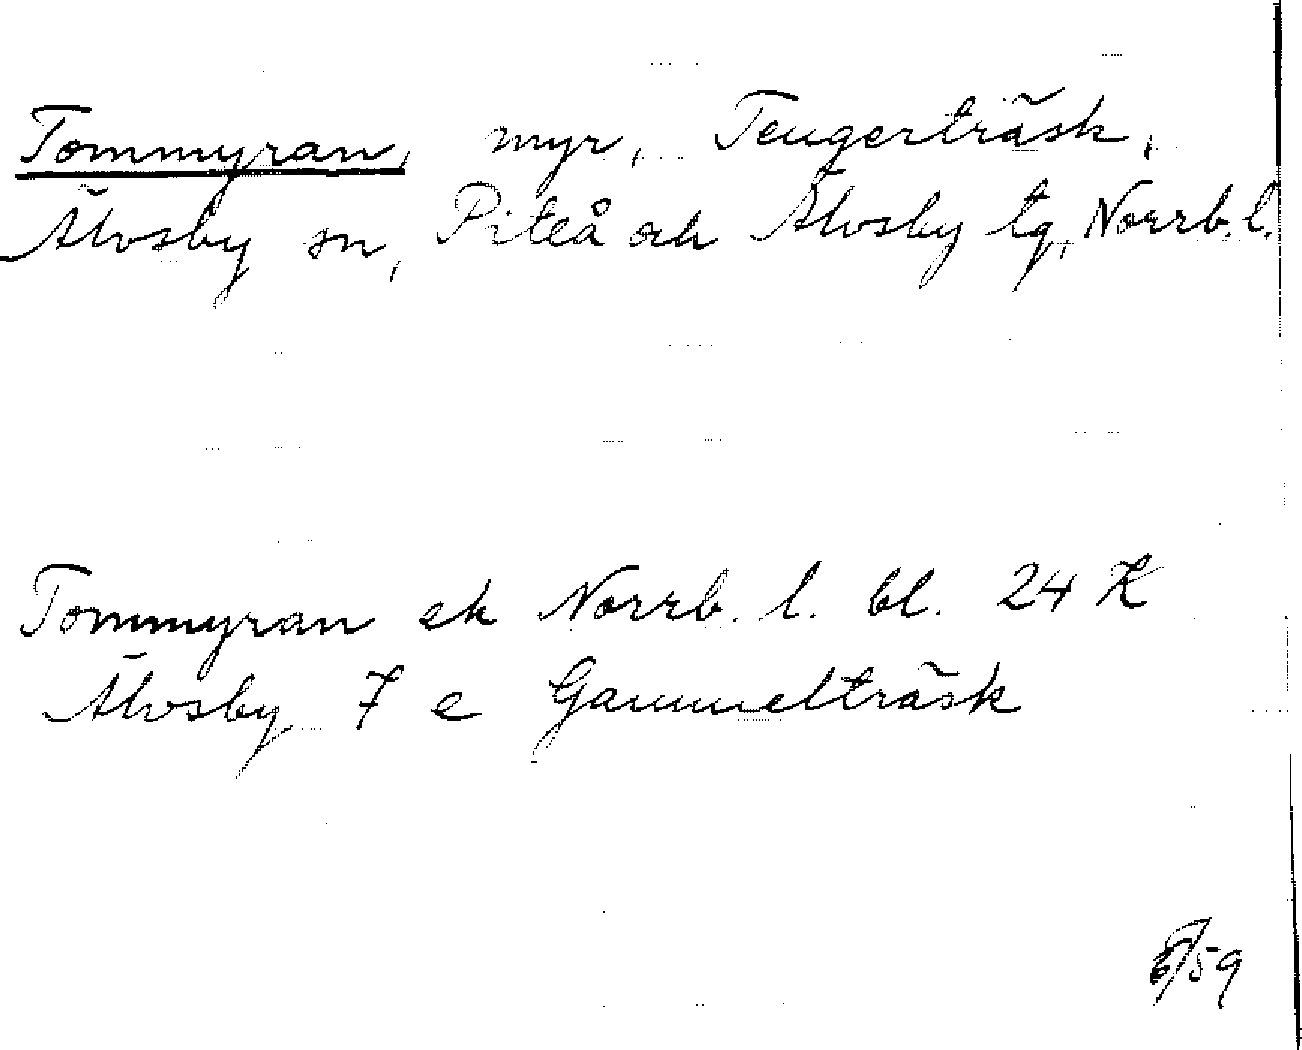 Tommyran, myr, Teugerträsk,
Älvsby sn, Piteå och Älvsby tg, Norrb. l.
Tommyran ek Norrb. l. bl. 24 K
Älvsby 7 e Gammelträsk